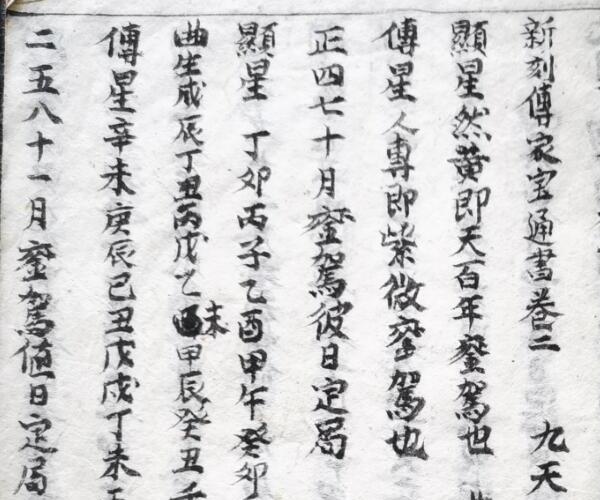 新刻傳家宝通書卷二 九天
顯星然黃即天百年鑾駕也
傳星人專即紫微鑾駕也
正四七十月鑾駕彼日定局
顯星 丁卯丙子乙酉甲午癸卯
曲星戊辰丁丑丙戌乙未甲辰癸丑壬
傳星辛未庚辰己丑戊戌丁未
二五八十一月鑾駕值日定局